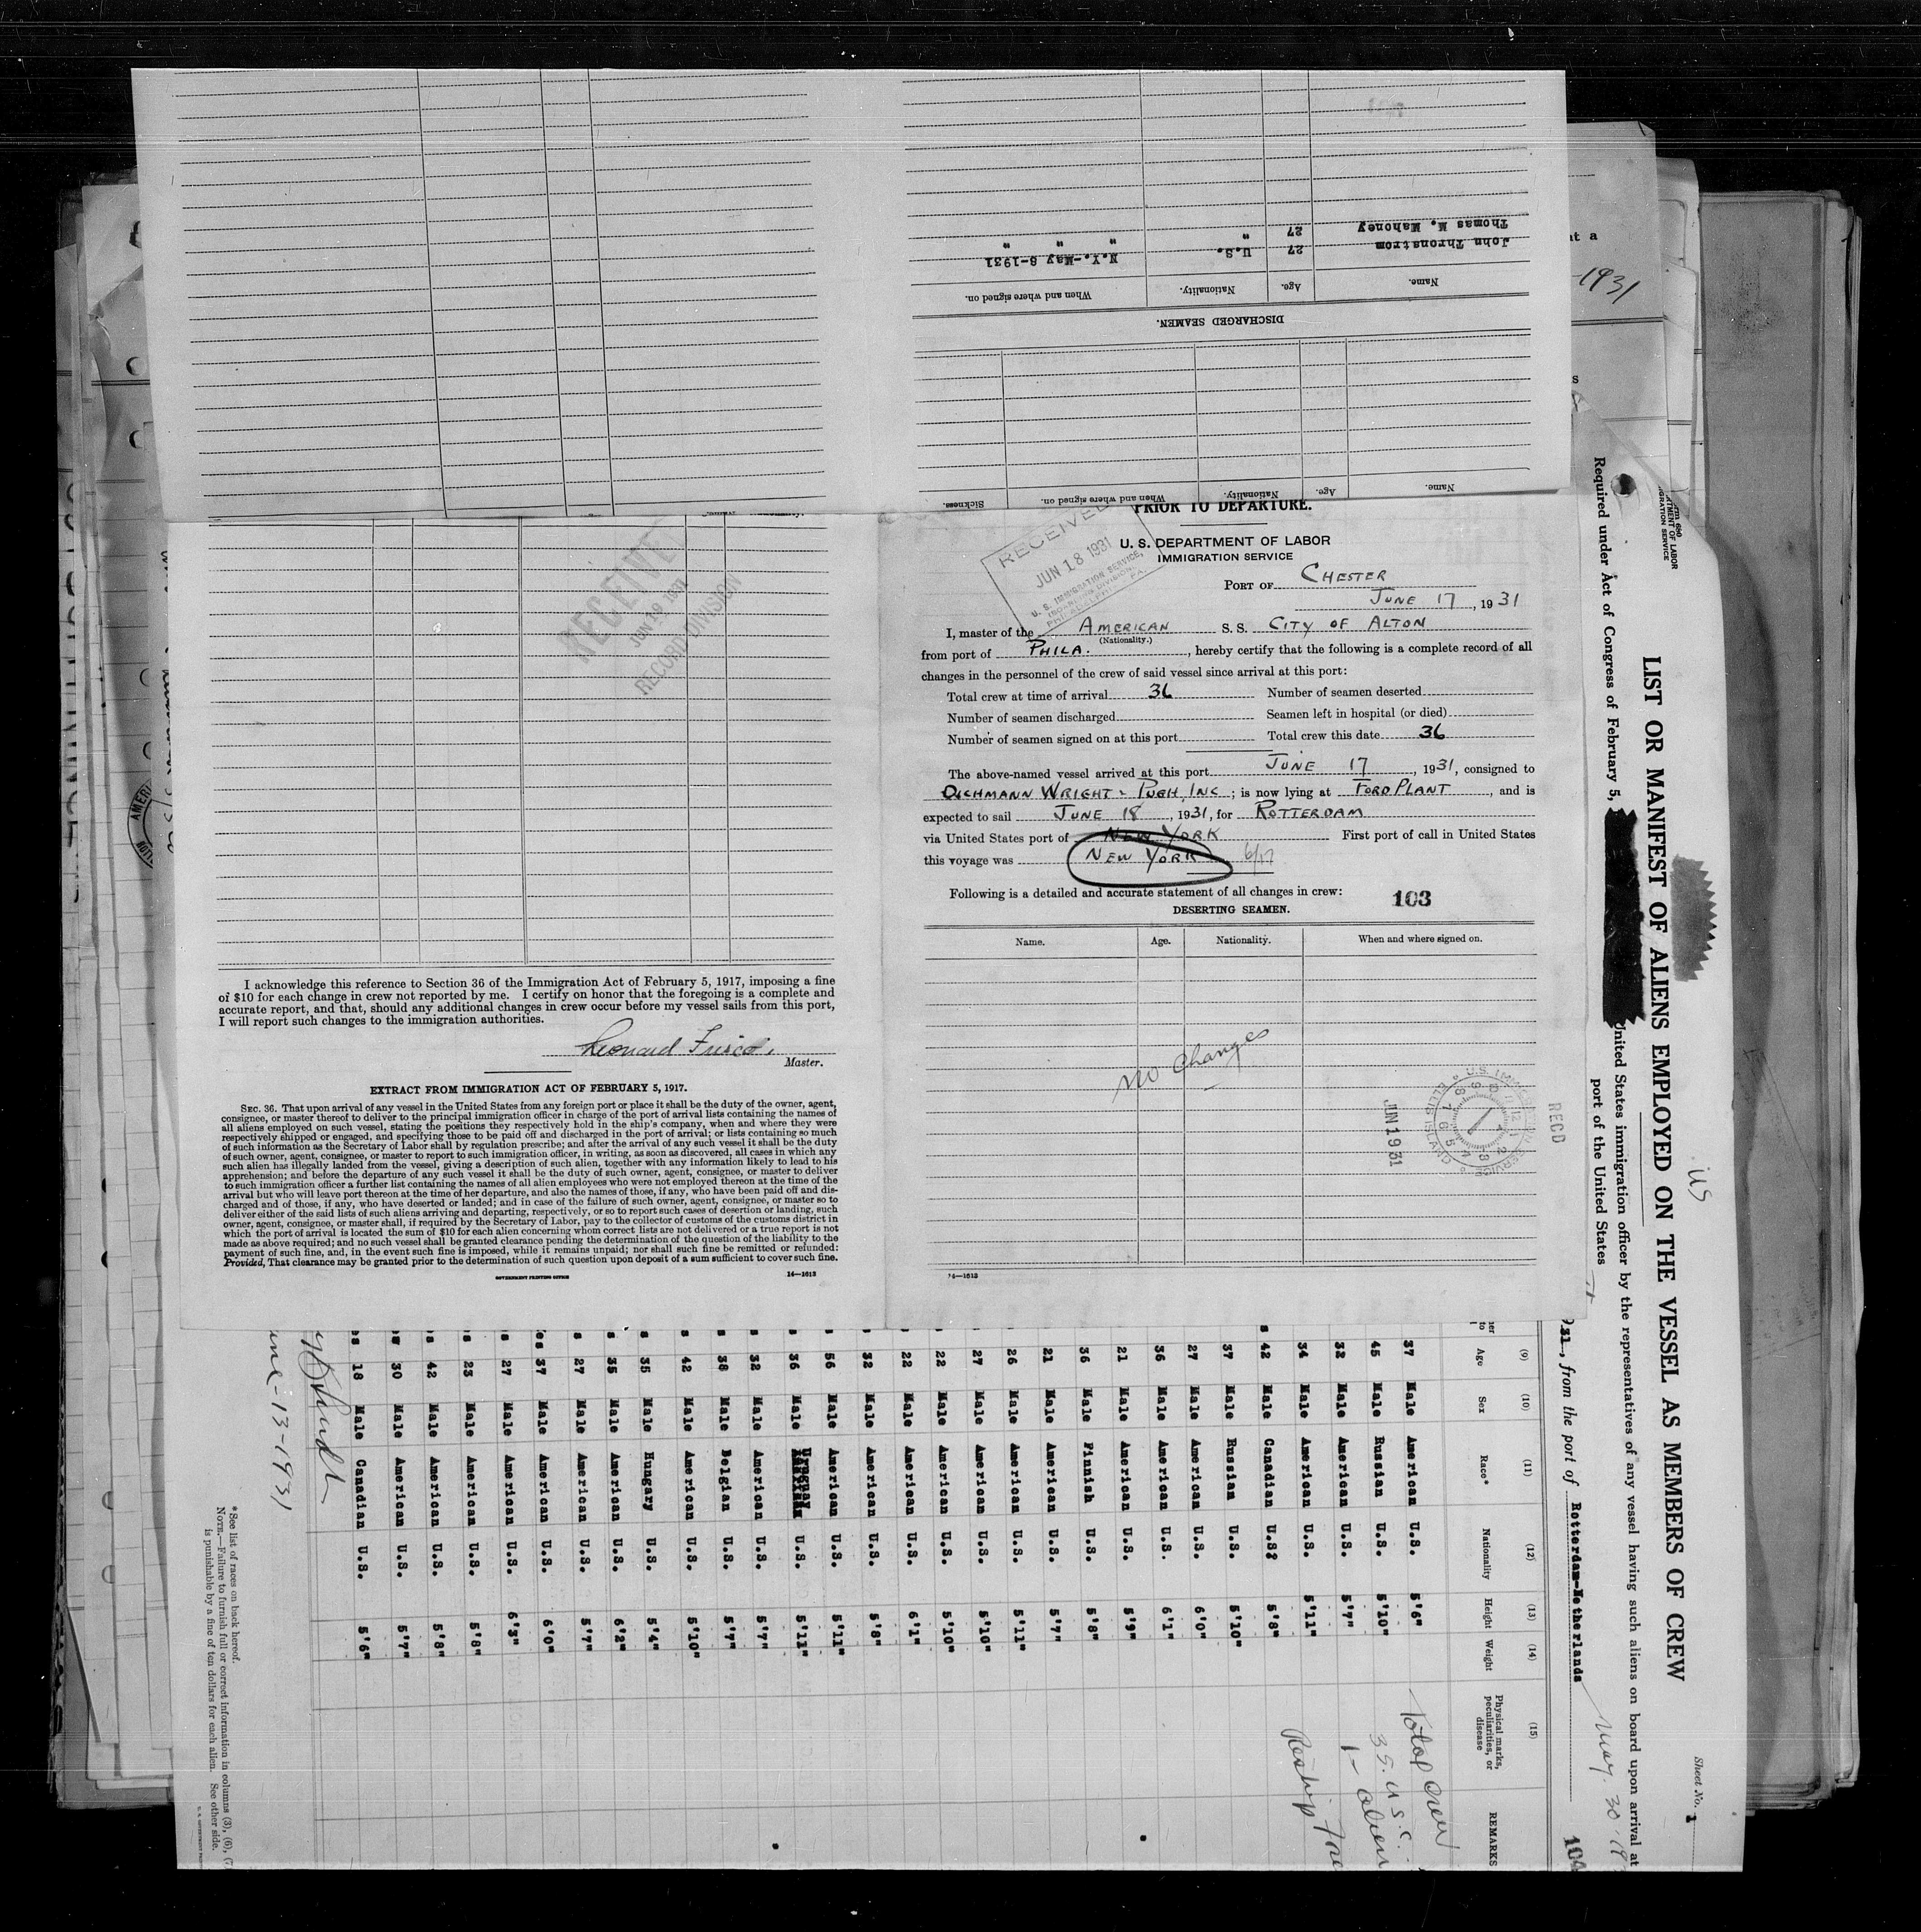 Thomas M. Mahoney 27 " " " "
John Thronstrom 27 U.S. N.Y.-May 8-1931
Name. Age. Nationality. When and where signed on.
DISCHARGED SEAMEN.
Name. Age. Nationality. When and where signed on. Sickness.
PRIOR TO DEPARTURE.
U. S. DEPARTMENT OF LABOR
IMMIGRATION SERVICE
RECEIVED
JUN 18 1931
U. S. IMMIGRATION SERVICE,
PHILADELPHIA, PA.
PORT OF CHESTER
JUNE 17, 1931
I, master of the AMERICAN S. S. CITY OF ALTON
(Nationality.)
from port of PHILA., hereby certify that the following is a complete record of all
changes in the personnel of the crew of said vessel since arrival at this port:
Total crew at time of arrival 36 Number of seamen deserted
Number of seamen discharged Seamen left in hospital (or died)
Number of seamen signed on at this port Total crew this date 36
The above-named vessel arrived at this port JUNE 17, 1931, consigned to
DICHMANN WRIGHT & PUGH, INC; is now lying at FORD PLANT, and is
expected to sail JUNE 18, 1931, for ROTTERDAM
via United States port of NEW YORK First port of call in United States
this voyage was NEW YORK 6/17
Following is a detailed and accurate statement of all changes in crew:
103
DESERTING SEAMEN.
Name. Age. Nationality. When and where signed on.
No Changes
JUN 19 31
RECD
U.S. IMMIGRATION SERVICE
ELLIS ISLAND
14—1613
RECEIVED
JUN 19 1931
RECORD DIVISION
I acknowledge this reference to Section 36 of the Immigration Act of February 5, 1917, imposing a fine
of $10 for each change in crew not reported by me. I certify on honor that the foregoing is a complete and
accurate report, and that, should any additional changes in crew occur before my vessel sails from this port,
I will report such changes to the immigration authorities.
Leonard Fusco,
Master.
EXTRACT FROM IMMIGRATION ACT OF FEBRUARY 5, 1917.
SEC. 36. That upon arrival of any vessel in the United States from any foreign port or place it shall be the duty of the owner, agent,
consignee, or master thereof to deliver to the principal immigration officer in charge of the port of arrival lists containing the names of
all aliens employed on such vessel, stating the positions they respectively hold in the ship's company, when and where they were
respectively shipped or engaged, and specifying those to be paid off and discharged in the port of arrival; or lists containing so much
of such information as the Secretary of Labor shall by regulation prescribe; and after the arrival of any such vessel it shall be the duty
of such owner, agent, consignee, or master to report to such immigration officer, in writing, as soon as discovered, all cases in which any
such alien has illegally landed from the vessel, giving a description of such alien, together with any information likely to lead to his
apprehension; and before the departure of any such vessel it shall be the duty of such owner, agent, consignee, or master to deliver
to such immigration officer a further list containing the names of all alien employees who were not employed thereon at the time of the
arrival but who will leave port thereon at the time of her departure, and also the names of those, if any, who have been paid off and dis-
charged and of those, if any, who have deserted or landed; and in case of the failure of such owner, agent, consignee, or master so to
deliver either of the said lists of such aliens arriving and departing, respectively, or so to report such cases of desertion or landing, such
owner, agent, consignee, or master shall, if required by the Secretary of Labor, pay to the collector of customs of the customs district in
which the port of arrival is located the sum of $10 for each alien concerning whom correct lists are not delivered or a true report is not
made as above required; and no such vessel shall be granted clearance pending the determination of the question of the liability to the
payment of such fine, and, in the event such fine is imposed, while it remains unpaid; nor shall such fine be remitted or refunded:
Provided, That clearance may be granted prior to the determination of such question upon deposit of a sum sufficient to cover such fine.
GOVERNMENT PRINTING OFFICE 14—1613
Sheet No. 1
LIST OR MANIFEST OF ALIENS EMPLOYED ON THE VESSEL AS MEMBERS OF CREW
Required under Act of Congress of February 5,
United States immigration officer by the representatives of any vessel having such aliens on board upon arrival at
port of the United States
1931, from the port of Rotterdam-Netherlands May 30-19
104
(9) (10) (11) (12) (13) (14) (15)
Age Sex Race* Nationality Height Weight Physical marks, peculiarities, or disease REMARKS
37 Male American U.S. 5'6"
45 Male Russian U.S. 5'10"
32 Male American U.S. 5'7"
34 Male American U.S. 5'11"
42 Male Canadian U.S? 5'8"
37 Male Russian U.S. 5'10"
27 Male American U.S. 6'0"
36 Male American U.S. 6'1"
21 Male American U.S. 5'9"
36 Male Finnish U.S. 5'8"
21 Male American U.S. 5'7"
26 Male American U.S. 5'11"
27 Male American U.S. 5'10"
22 Male American U.S. 5'10"
22 Male American U.S. 6'1"
32 Male American U.S. 5'8"
56 Male American U.S. 5'11"
36 Male Uruguay U.S. 5'11"
32 Male American U.S. 5'7"
38 Male Belgian U.S. 5'7"
42 Male American U.S. 5'10"
35 Male Hungary U.S. 5'4"
35 Male American U.S. 6'2"
27 Male American U.S. 5'7"
37 Male American U.S. 6'0"
27 Male American U.S. 6'3"
23 Male American U.S. 5'8"
42 Male American U.S. 5'8"
30 Male American U.S. 5'7"
18 Male Canadian U.S. 5'6"
Total Crew
35. U.S.C.
1- alien
Reship Fore
June-13-1931
*See list of races on back hereof.
NOTE.—Failure to furnish full or correct information in columns (3), (6), (7)
is punishable by a fine of ten dollars for each alien. See other side.
-1931